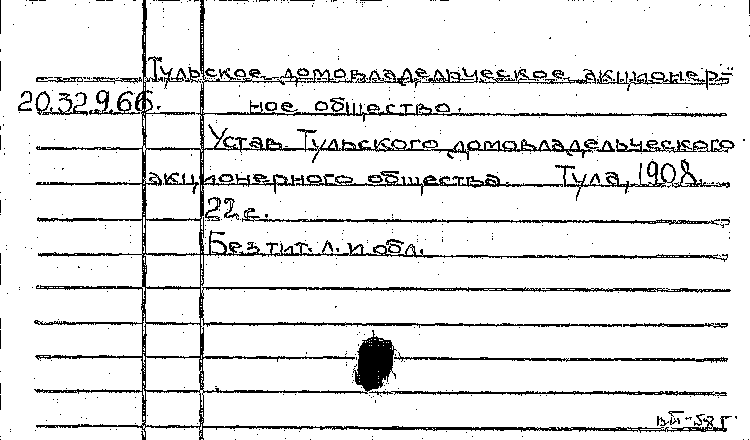 Тульское домовладельческое акционер-
20.32.9.66. ное общество.
Устав Тульского домовладельческого
акционерного общества. Тула, 1908.
22 с.
Без тит. л. и обл.